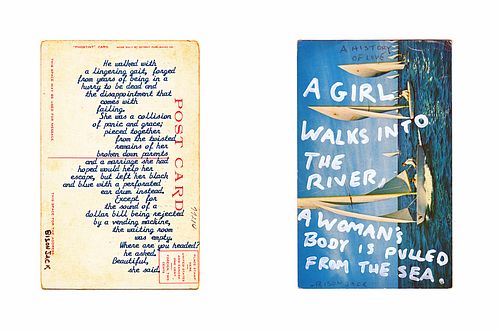 "PHOSTINT" CARD
He walked with
a lingering gait, forged
from years of being in a
hurry to be dead and
the disappointment that
comes with
failing.
She was a collision
of panic and grace;
pieced together
from the twisted
remains of her
broken down parents
and a marriage she had
hoped would help her
escape, but left her black
and blue with a perforated
ear drum instead.
Except for
the sound of a
dollar bill being rejected
by a vending machine,
the waiting room
was empty.
Where are you headed?
he asked.
Beautiful,
she said.
POST CARD
BISON JACK
A HISTORY
OF LOVE
A GIRL
WALKS INTO
THE
RIVER,
A WOMAN'S
BODY IS PULLED
FROM THE SEA.
-BISON JACK